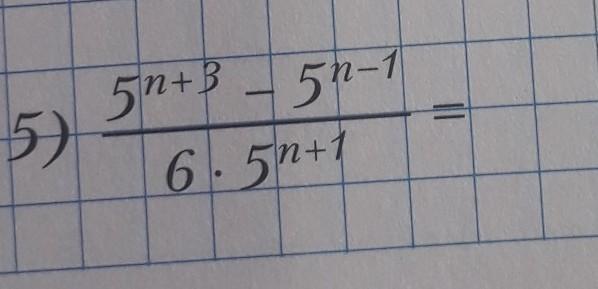 5) \frac{5^{n+3} - 5^{n-1}}{6 \cdot 5^{n+1}} =